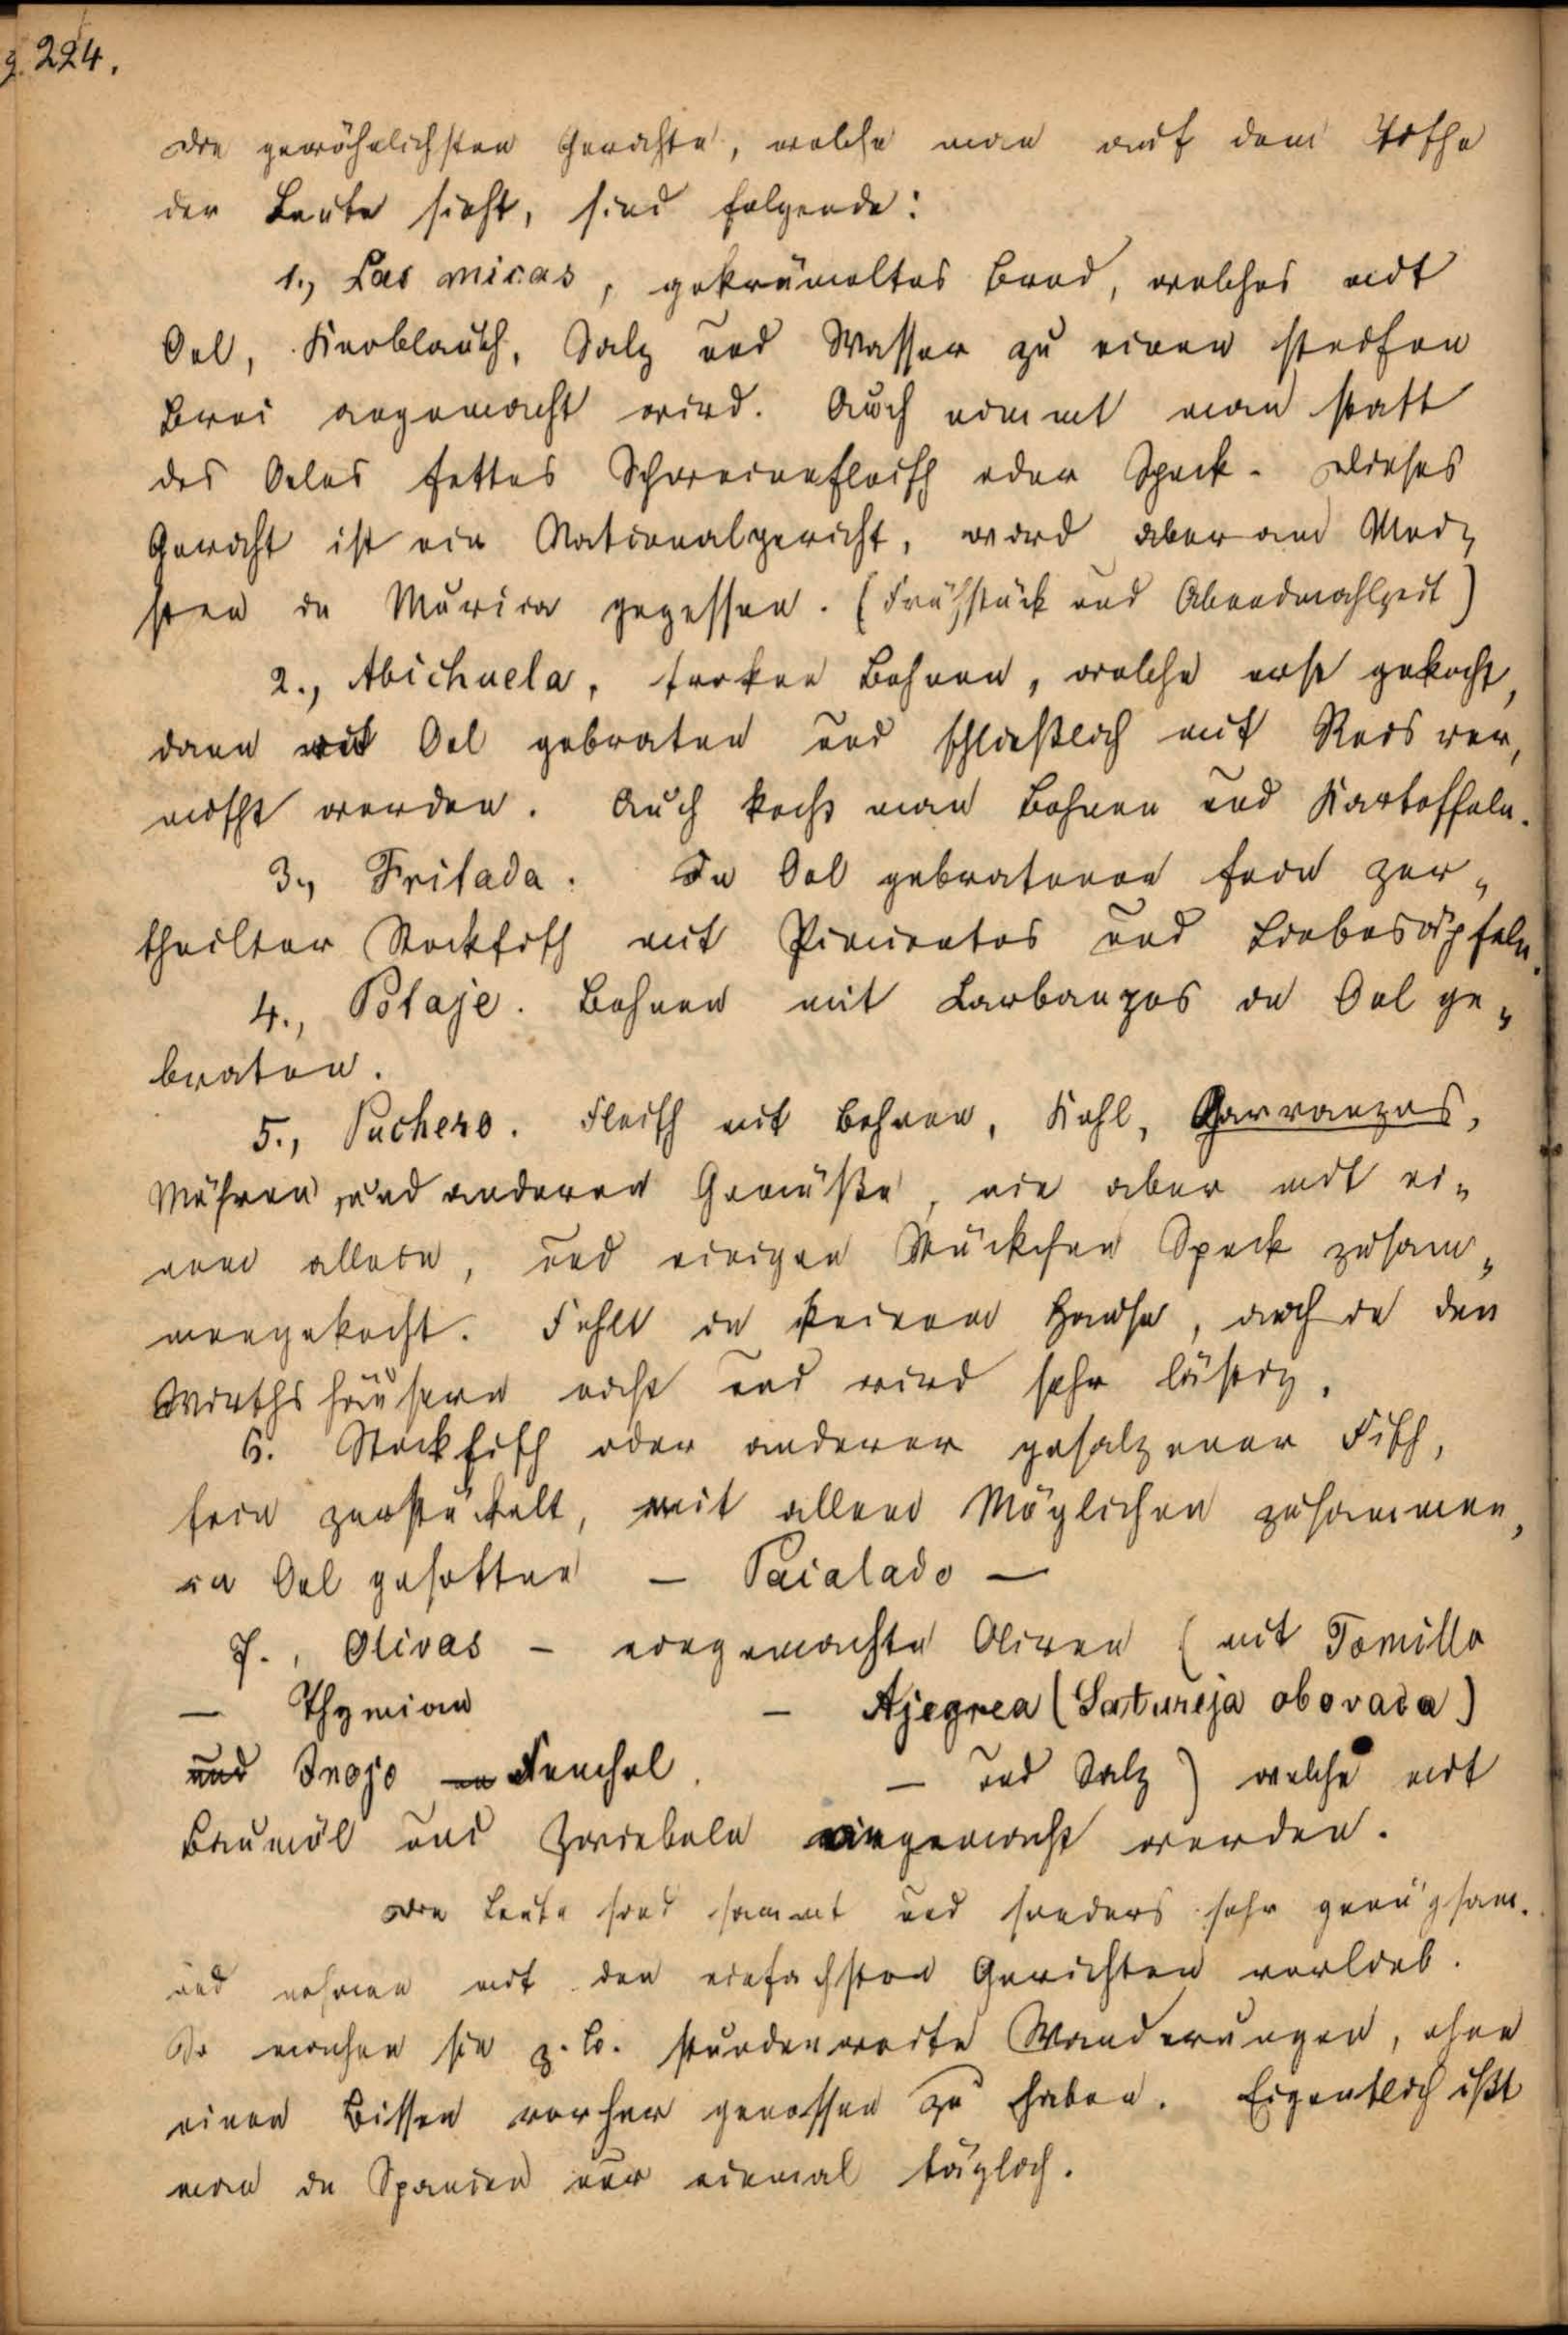 g. 224.
Die gewöhnlichsten Gerichte, welche man auf dem Tische
der Leute sieht, sind folgende:
1., Las micas, gekrümeltes Brod, welches mit
Oel, Knoblauch, Salz und Wasser zu einen steifen
Brei angemacht wird. Auch nimmt man statt
des Oeles fettes Schweinefleisch oder Speck. Dieses
Gericht ist ein Nationalgericht, wird aber am Mei-
sten in Murcia gegessen. (Frühstück und Abendmahlzeit)
2., Abichuela, troken Bohnen, welche erst gekocht,
dann mit Oel gebraten und schließlich mit Reis ver-
mischt werden. Auch kocht man Bohnen und Kartoffeln.
3., Fritada. In Oel gebratener fein zer-
theilter Stockfisch mit Pimientos und Liebesäpfeln.
4., Potaje. Bohnen mit Barbanzos in Oel ge-
braten.
5., Puchero. Fleisch mit Bohnen, Kohl, Garvanzos,
Möhren, und anderen Gemüße, nie aber mit ei-
nem allein, und einigen Stückchen Speck zusam-
mengekocht. Fehlt in keinem Hause, auch in den
Wirthshäusern nicht und wird sehr lästig.
6. Stockfisch oder anderer gesalzener Fisch,
fein zerstückelt, mit allem Möglichen zusammen,
in Oel gesotten – Paialado –
7., Olivas – eingemachte Oliven (mit Tomillo
– Thymian – Ajegrea (Satureja obovada)
und Inojo Fenchel. – und Salz) welche mit
Baumöl und Zwiebeln eingemacht werden.
Die Leute sind sammt und sonders sehr genügsam.
und nehmen mit den einfachsten Gerichten vorlieb.
So machen sie z. B. stundenweite Wanderungen, ohne
einen Bissen vorher genossen zu haben. Eigentlich ißt
man in Spanien nur einmal täglich.